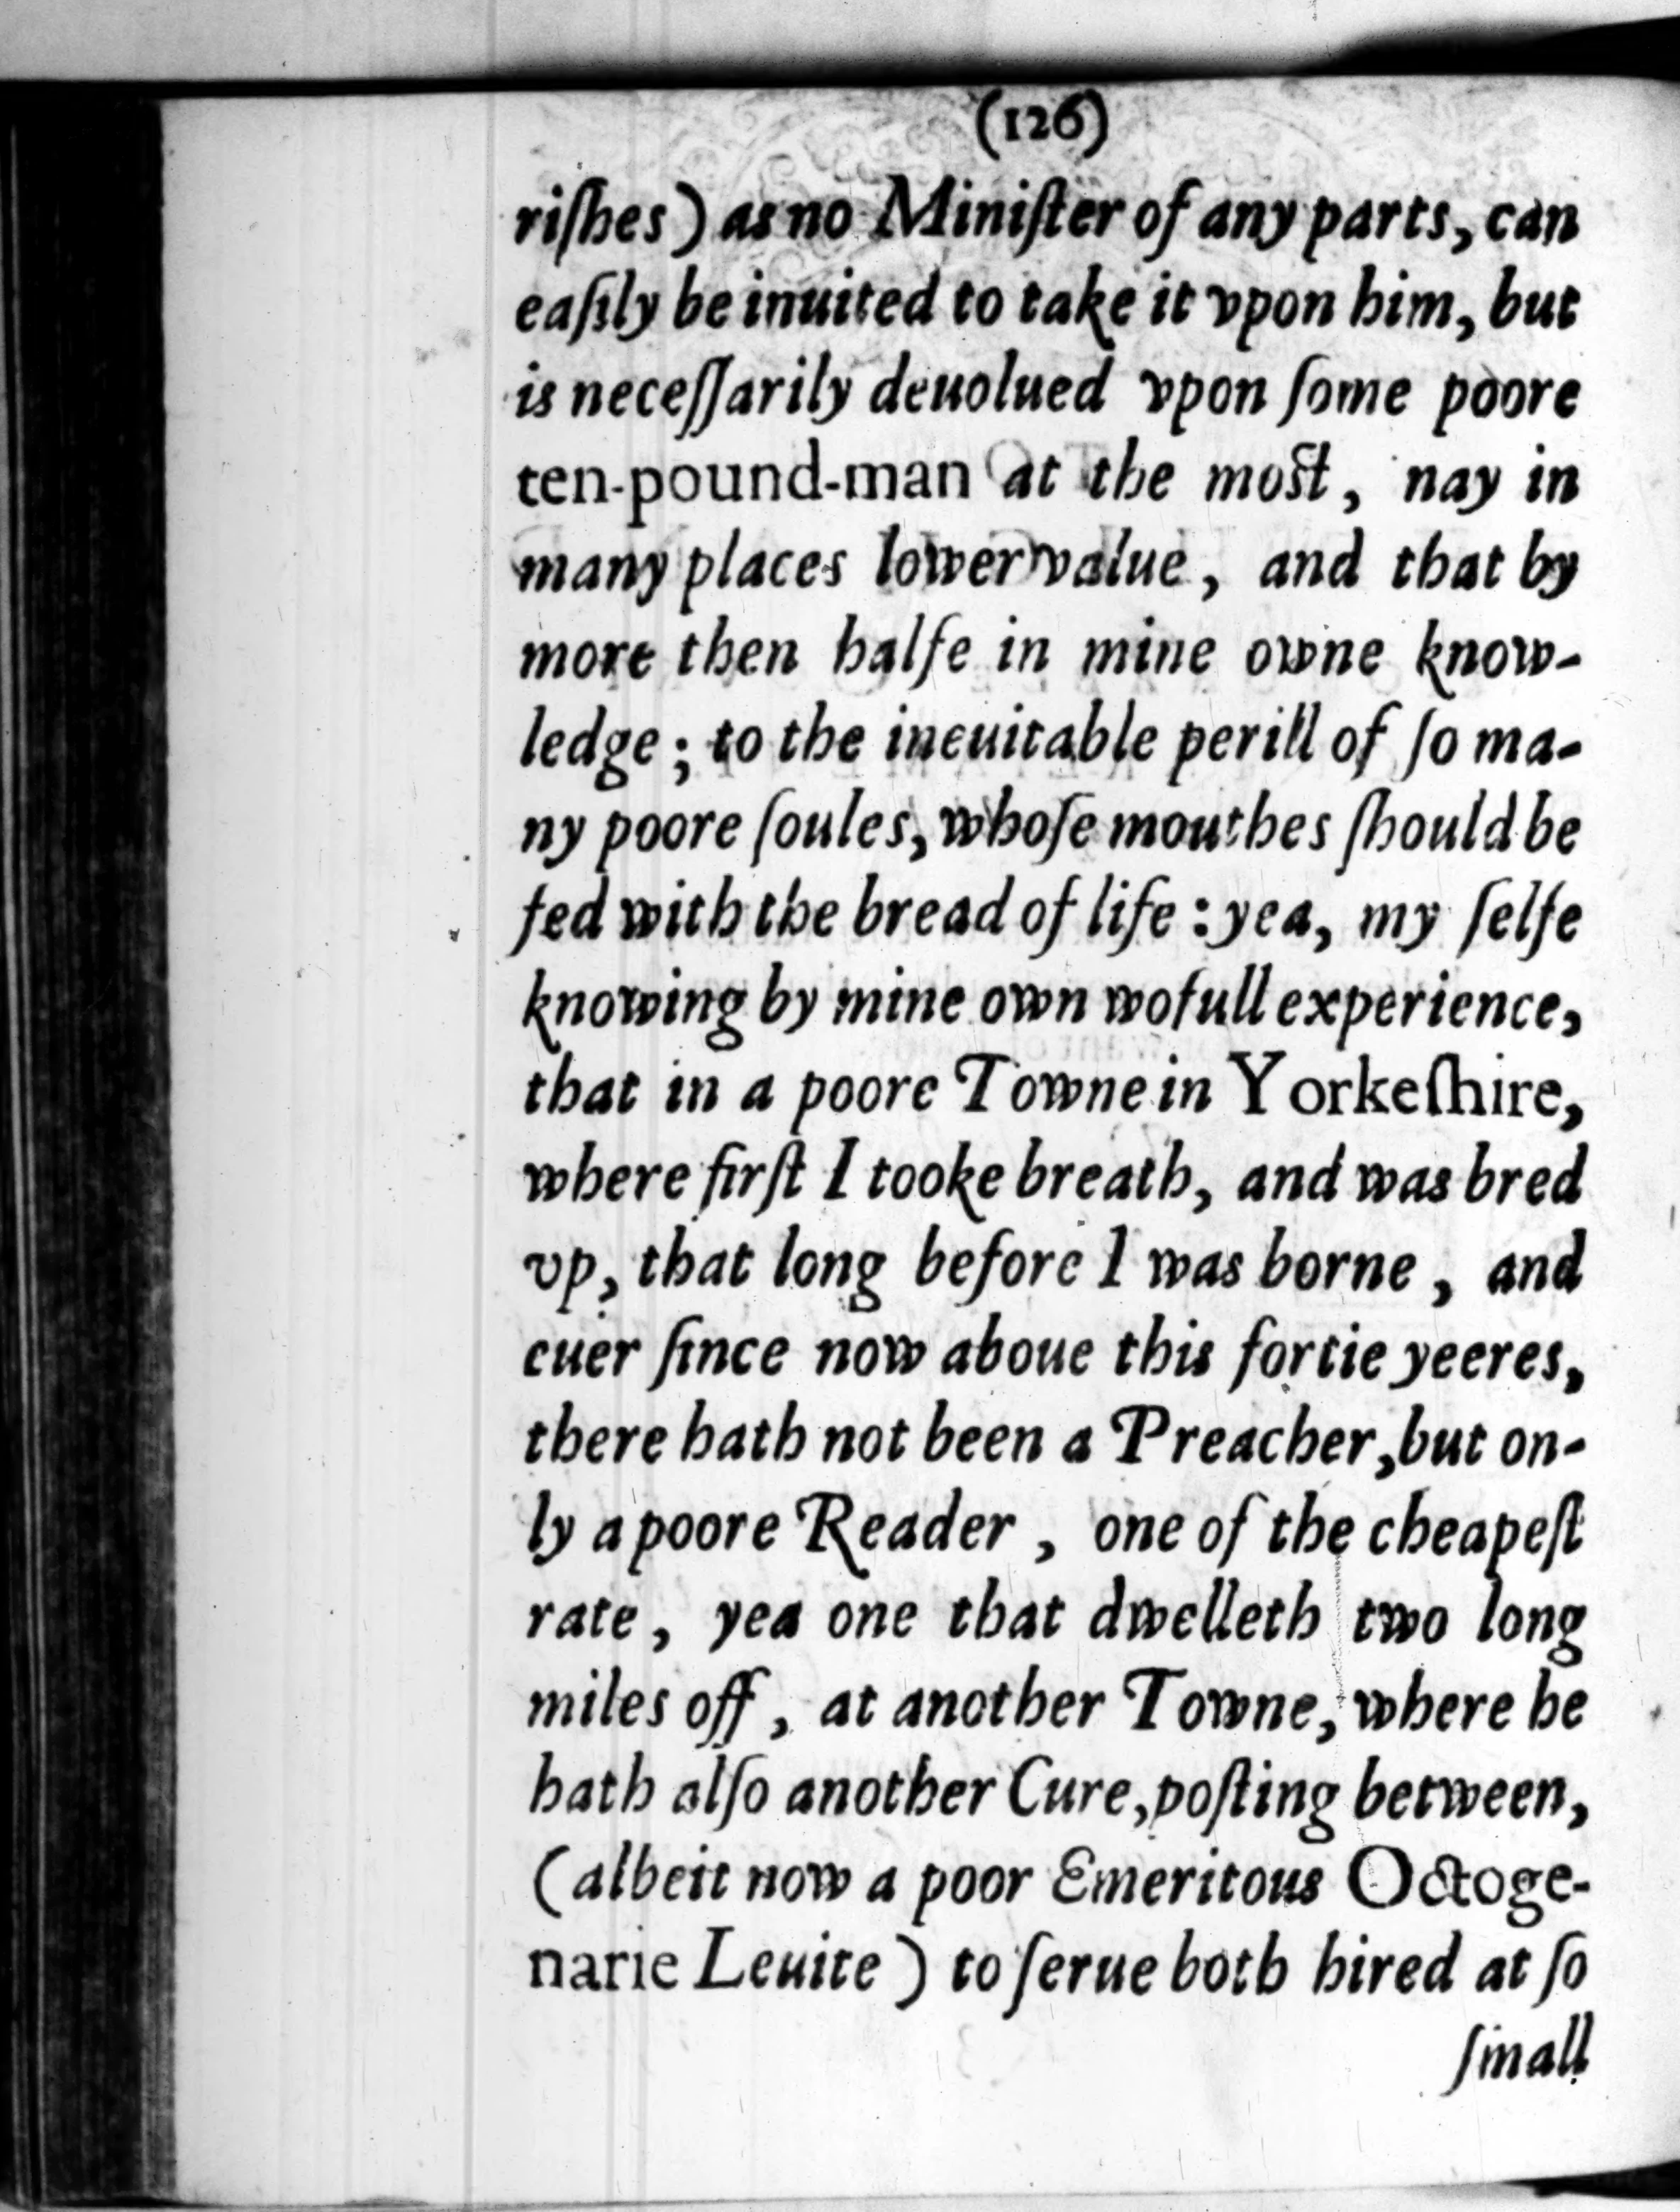 (126)
riſhes) as no Miniſter of any parts, can
eaſily be inuited to take it vpon him, but
is neceſſarily deuolued vpon ſome poore
ten-pound-man at the moſt, nay in
many places lower value, and that by
more then halfe in mine owne know-
ledge; to the ineuitable perill of ſo ma-
ny poore ſoules, whoſe mouthes ſhould be
fed with the bread of life: yea, my ſelfe
knowing by mine own wofull experience,
that in a poore Towne in Yorkeſhire,
where firſt I tooke breath, and was bred
vp, that long before I was borne, and
euer ſince now aboue this fortie yeeres,
there hath not been a Preacher, but on-
ly a poore Reader, one of the cheapeſt
rate, yea one that dwelleth two long
miles off, at another Towne, where he
hath alſo another Cure, poſting between,
(albeit now a poor Emeritous Octoge-
narie Leuite) to ſerue both hired at ſo
ſmall